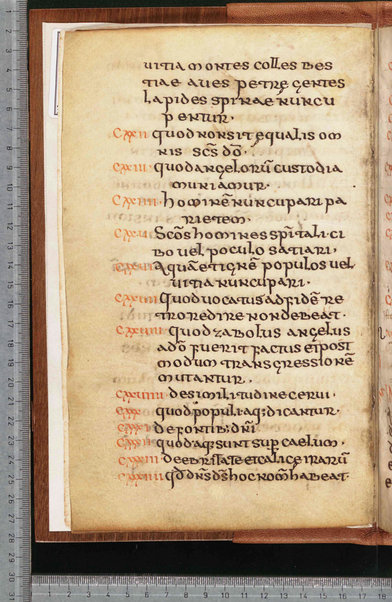 uitia montes colles bes
tiae aues petrę gentes
lapides spinae nuncu
pentur·
CXXII quod non sit equalis om
nis scs dō·
CXXIII quod angelorū custodia
muniamur·
CXXIIII hominē nuncupari pa
rietem·
CXXV Scōs homines spitali ci
bo uel poculo satiari·
CXXVI Aquā et ignē populos uel
uitia nuncupari·
CXXVII quod uocatus ad fidē re
tro redire non debeat·
CXXVIII quod zabolus angelus
a dō fuerit factus et post
modum transgressionē
mutantur·
CXXVIIII de similitudine cerui·
CXXX quod populi aq; dicantur·
CXXXI de fontib; dni
CXXXII quod aq; sunt sup caelum·
CXXXIII de ebrietate et calice irarū
CXXXIIII qd dns ds hoc nom habeat·